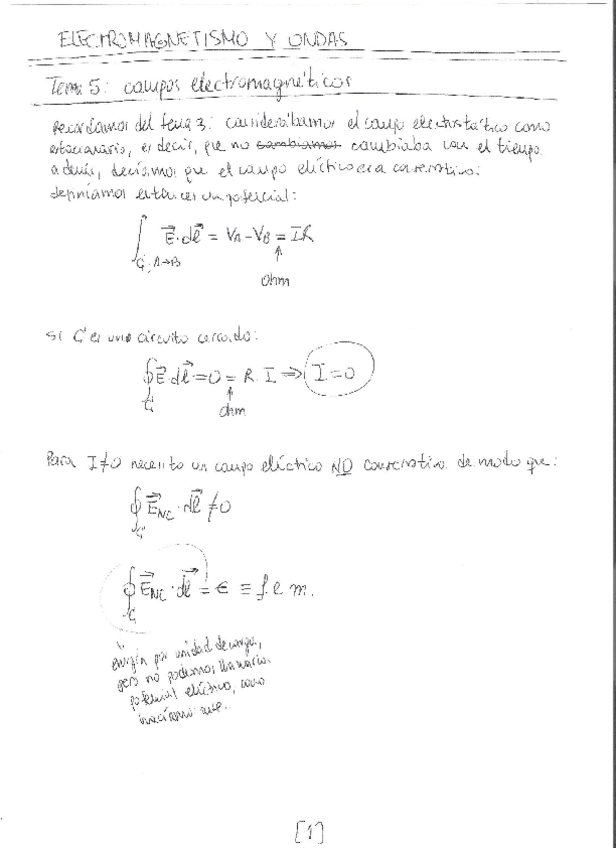 ELECTROMAGNETISMO Y ONDAS
Tema 5: campos electromagnéticos
Recordamos del tema 3: considerábamos el campo electrostático como
estacionario, es decir, que no cambiamos cambiaba con el tiempo
además, decíamos que el campo eléctrico era conservativo:
definíamos entonces un potencial:
∫ E⃗·dl⃗ = VA - VB = IR
C; A→B
↑
Ohm
Si C es un circuito cerrado:
∮ E⃗·dl⃗ = 0 = R·I ⇒ I=0
C
↑
Ohm
Para I≠0 necesito un campo eléctrico NO conservativo de modo que:
∮ E⃗NC·dl⃗ ≠ 0
C
∮ E⃗NC·dl⃗ = ϵ ≡ f.e.m.
C
energía por unidad de carga,
pero no podemos llamarlo
potencial eléctrico, como
hacíamos
[1]